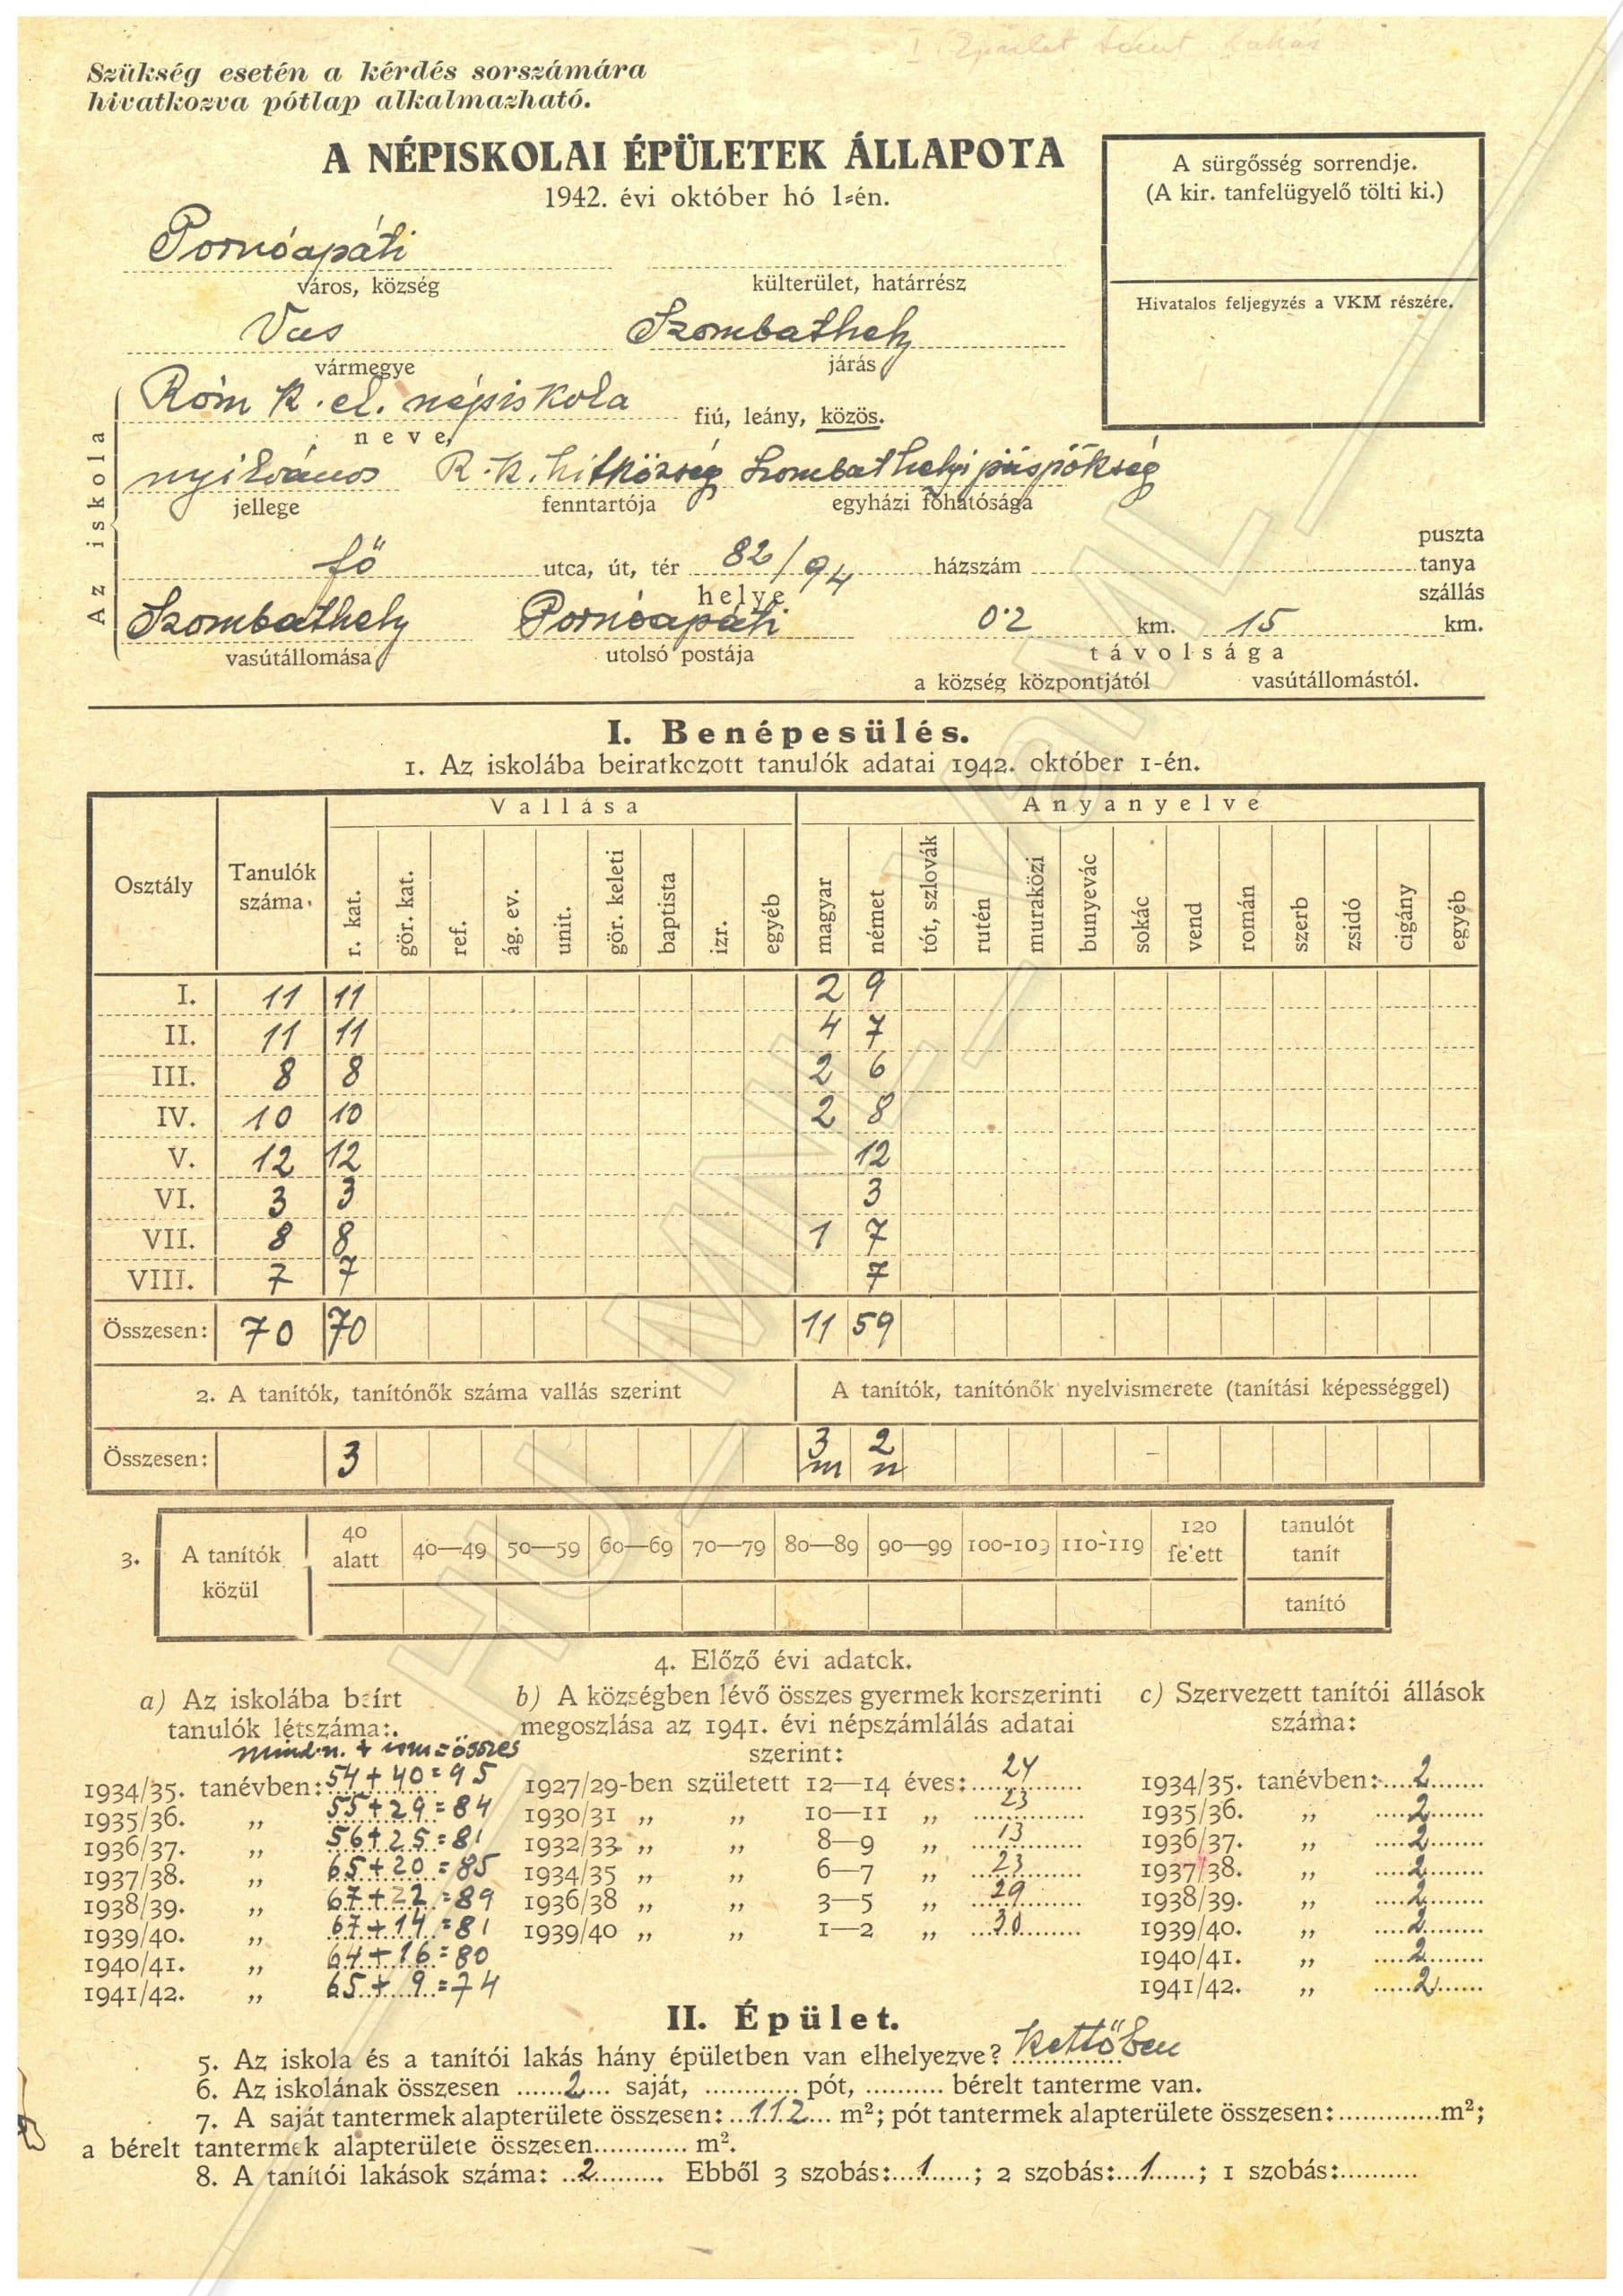 I. Épület
Szükség esetén a kérdés sorszámára
hivatkozva pótlap alkalmazható.
A NÉPISKOLAI ÉPÜLETEK ÁLLAPOTA
1942. évi október hó 1-én.
A sürgősség sorrendje.
(A kir. tanfelügyelő tölti ki.)
Hivatalos feljegyzés a VKM részére.
Pornóapáti
város, község külterület, határrész
Vas Szombathely
vármegye járás
Az iskola
Róm k. el. népiskola fiú, leány, közös.
neve
nyilvános R. k. hitközség Szombathelyi püspökség
jellege fenntartója egyházi főhatósága
puszta
fő utca, út, tér 82/94 házszám tanya
helye szállás
Szombathely Pornóapáti 0·2 km. 15 km.
vasútállomása utolsó postája távolsága
a község központjától vasútállomástól.
I. Benépesülés.
1. Az iskolába beiratkozott tanulók adatai 1942. október 1-én.
Osztály Tanulók száma Vallása Anyanyelve
r. kat. gör. kat. ref. ág. ev. unit. gör. keleti baptista izr. egyéb magyar német tót, szlovák rutén muraközi bunyevác sokác vend román szerb zsidó cigány egyéb
I. 11 11 2 9
II. 11 11 4 7
III. 8 8 2 6
IV. 10 10 2 8
V. 12 12 12
VI. 3 3 3
VII. 8 8 1 7
VIII. 7 7 7
Összesen: 70 70 11 59
2. A tanítók, tanítónők száma vallás szerint A tanítók, tanítónők nyelvismerete (tanítási képességgel)
Összesen: 3 3 m 2 n
3. A tanítók közül 40 alatt 40—49 50—59 60—69 70—79 80—89 90—99 100-109 110-119 120 felett tanulót tanít
tanító
4. Előző évi adatok.
a) Az iskolába beírt
tanulók létszáma:
mindn. + ism = összes
1934/35. tanévben: 54+40=95
1935/36. „ 55+29=84
1936/37. „ 56+25=81
1937/38. „ 65+20=85
1938/39. „ 67+22=89
1939/40. „ 67+14=81
1940/41. „ 64+16=80
1941/42. „ 65+9=74
b) A községben lévő összes gyermek korszerinti
megoszlása az 1941. évi népszámlálás adatai
szerint:
1927/29-ben született 12—14 éves: 24
1930/31 „ „ 10—11 „ 23
1932/33 „ „ 8—9 „ 13
1934/35 „ „ 6—7 „ 23
1936/38 „ „ 3—5 „ 29
1939/40 „ „ 1—2 „ 30
c) Szervezett tanítói állások
száma:
1934/35. tanévben: 2
1935/36. „ 2
1936/37. „ 2
1937/38. „ 2
1938/39. „ 2
1939/40. „ 2
1940/41. „ 2
1941/42. „ 2
II. Épület.
5. Az iskola és a tanítói lakás hány épületben van elhelyezve? Kettőben
6. Az iskolának összesen 2 saját, pót, bérelt tanterme van.
7. A saját tantermek alapterülete összesen: 112 m²; pót tantermek alapterülete összesen: m²;
a bérelt tantermek alapterülete összesen m².
8. A tanítói lakások száma: 2. Ebből 3 szobás: 1; 2 szobás: 1; 1 szobás:
HU_MNL_VaML